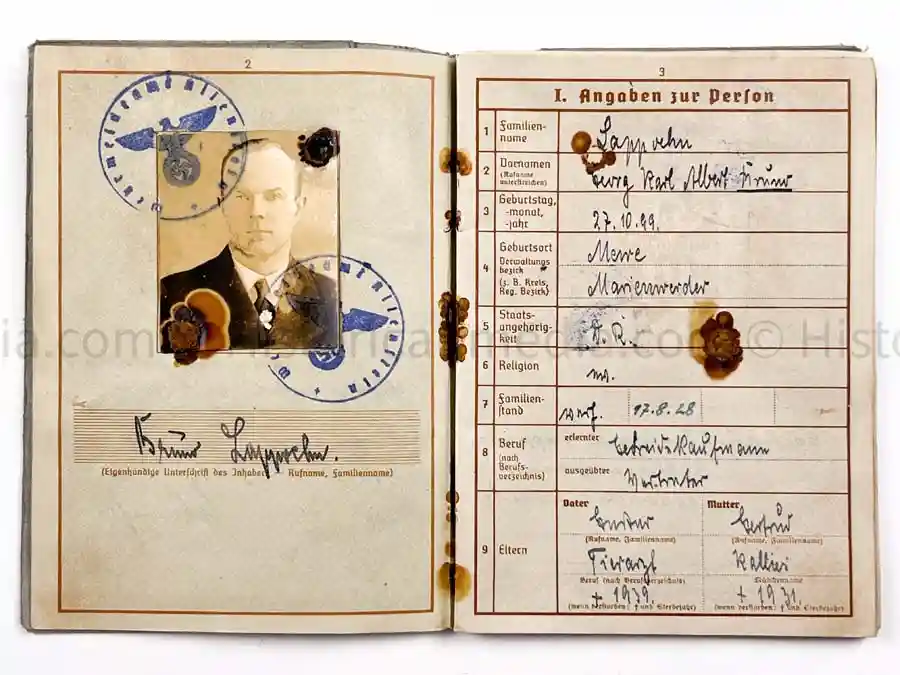 2
Wehrmeldeamt Allenstein
Wehrmeldeamt Allenstein
Bruno Lappoehn.
(Eigenhändige Unterschrift des Inhabers – Rufname, Familienname)
3
I. Angaben zur Person
1 Familien-
name
Lappoehn
2 Vornamen
(Rufname
unterstreichen)
Georg Karl Albert Bruno
3 Geburtstag,
-monat,
-jahr
27.10.99.
4 Geburtsort
Verwaltungs
bezirk
(z. B. Kreis,
Reg. Bezirk)
Mewe
Marienwerder
5 Staats-
angehörig-
keit
D. R.
6 Religion
ev.
7 Familien-
stand
verh. 17.8.28
8 Beruf
(nach
Berufs-
verzeichnis)
erlernter
Getreidekaufmann
ausgeübter
Vertreter
9 Eltern
Vater Mutter
Gustav Gertrud
(Rufname, Familienname) (Rufname, Familienname)
Tierarzt
Beruf (nach Berufsverzeichnis) Mädchenname
† 1939. † 1931.
(wenn verstorben: † und Sterbejahr) (wenn verstorben: † und Sterbejahr)